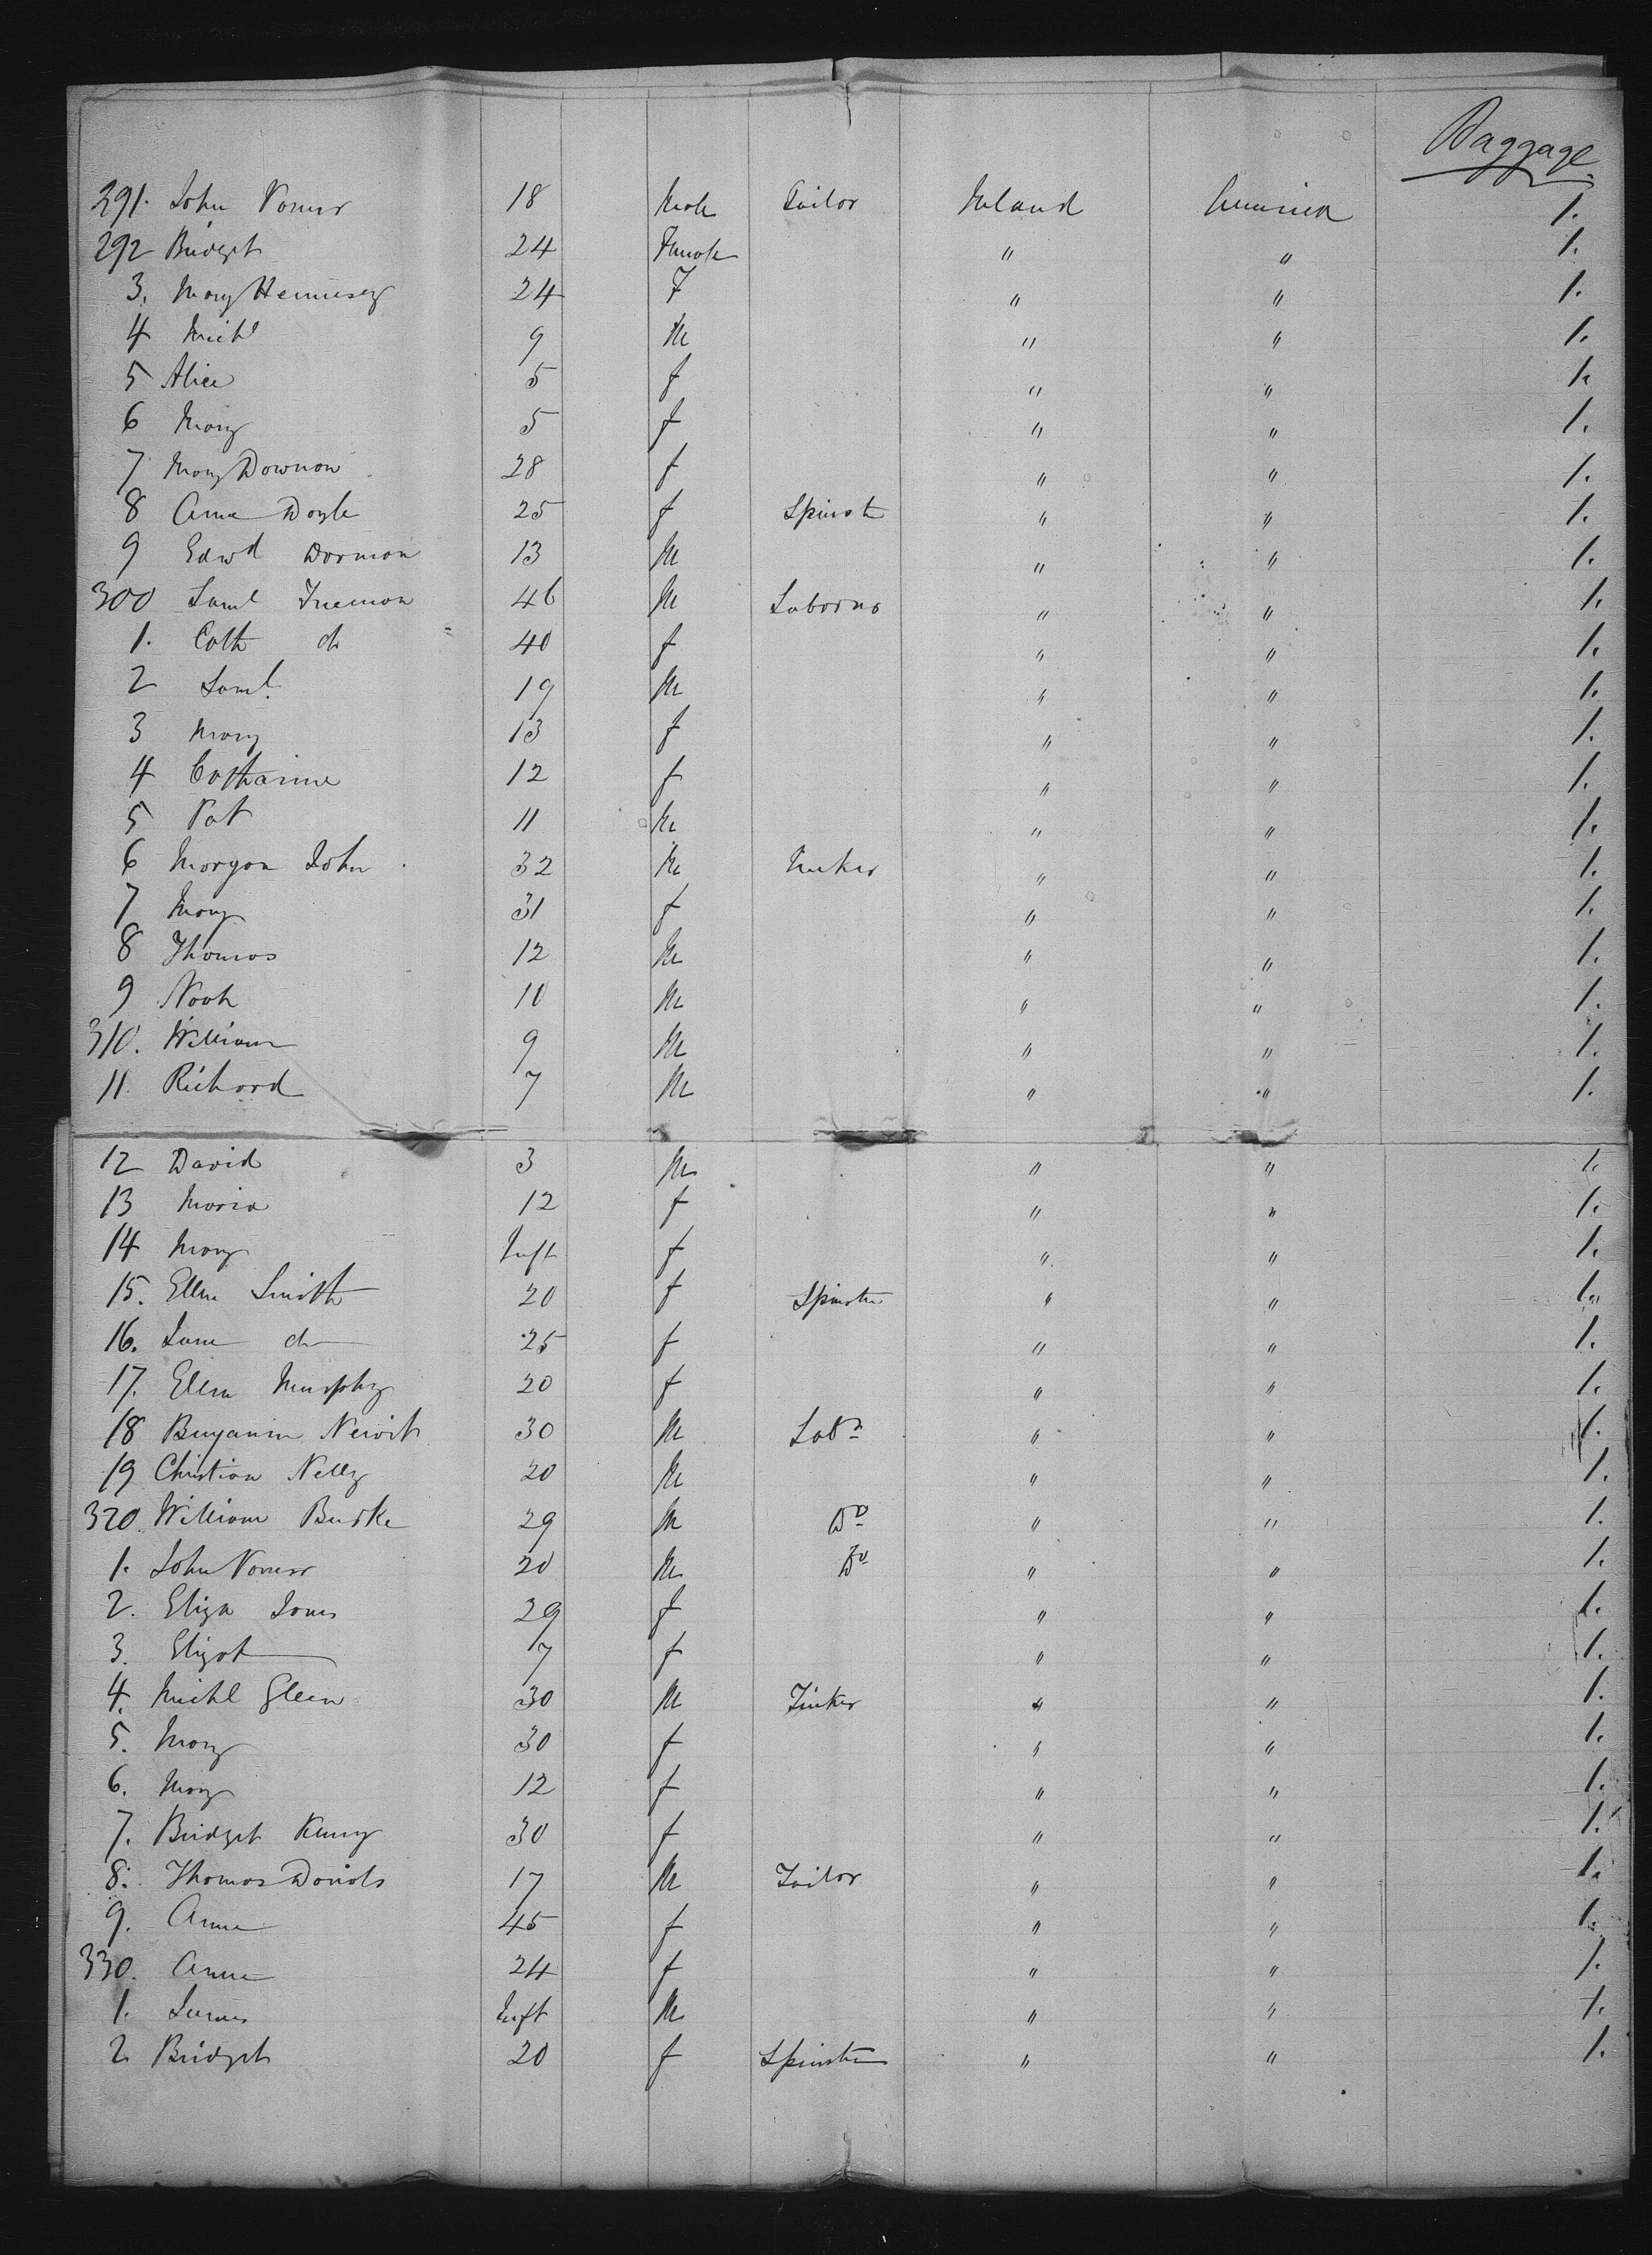 Baggage
291. John Ireland America 18 Male Tailor 1.
292 Bridget 24 Female " " 1.
3. Mary Hennesey 24 F " " 1.
4 Michl 9 M " " 1.
5 Alice 5 f " " 1.
6 Mary 5 f " " 1.
7 Mary 28 f " " 1.
8 Anne Doyle 25 f Spinster " " 1.
9 Edwd Dorman 13 M " " 1.
300 Saml 46 M Laborer " " 1.
1. Cath do 40 f " " 1.
2 Saml 19 M " " 1.
3 Mary 13 f " " 1.
4 Catharine 12 f " " 1.
5 Pat 11 M " " 1.
6 Morgan John 32 M " " 1.
7 Mary 31 f " " 1.
8 Thomas 12 M " " 1.
9 Noah 10 M " " 1.
310. William 9 M " " 1.
11. Richard 7 M " " 1.
12 David 3 M " " 1.
13 Maria 12 f " " 1.
14 Mary Inft f " " 1.
15. Ellen Smith 20 f Spinster " " 1.
16. Jane do 25 f " " 1.
17. Ellen Murphy 20 f " " 1.
18 Benjamin 30 M Labr " " 1.
19 Christian Nelly 20 M " " 1.
320. William Burke 29 M Do " " 1.
1. John 20 M Do " " 1.
2. Eliza Jones 29 f " " 1.
3. Elizat 7 f " " 1.
4. Michl Gleen 30 M Tinker " " 1.
5. Mary 30 f " " 1.
6. Mary 12 f " " 1.
7. Bridget Kenny 30 f " " 1.
8. Thomas Daniels 17 M Tailor " " 1.
9. Anne 45 f " " 1.
330. Anne 24 f " " 1.
1. James Inft M " " 1.
2 Bridget 20 f Spinster " " 1.